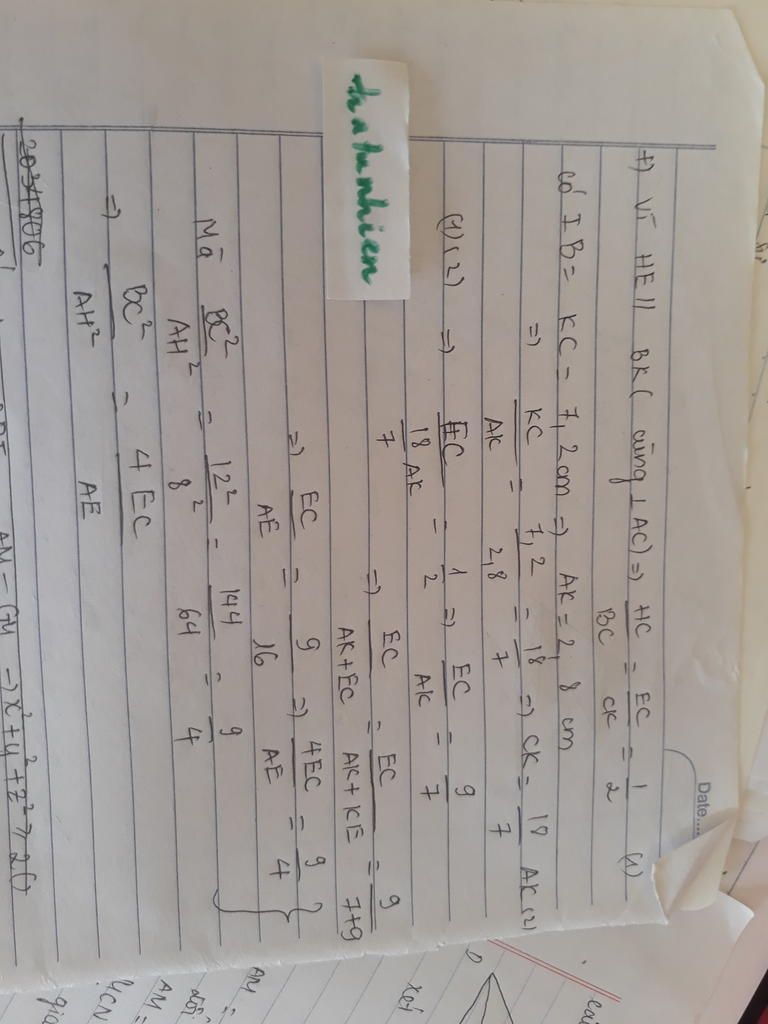 Date....
+) Vì HE // BK ( cùng ⊥ AC) => HC/BC = EC/CK = 1/2 (1)
có IB = KC = 7,2cm => AK = 2,8 cm
=> KC/AK = 7,2/2,8 = 18/7 => CK = 18/7 AK (2)
(1)(2) => EC/(18/7 AK) = 1/2 => EC/AK = 9/7
hatunhien
=> EC/(AK+EC) = EC/(AK+KE) = 9/(7+9)
=> EC/AE = 9/16 => 4EC/AE = 9/4
Mà BC²/AH² = 12²/8² = 144/64 = 9/4
=> BC²/AH² = 4EC/AE
20341806
AM = GM => x² + y² + z² ≥ 2()
AM =
AM =
UCN
xét
O